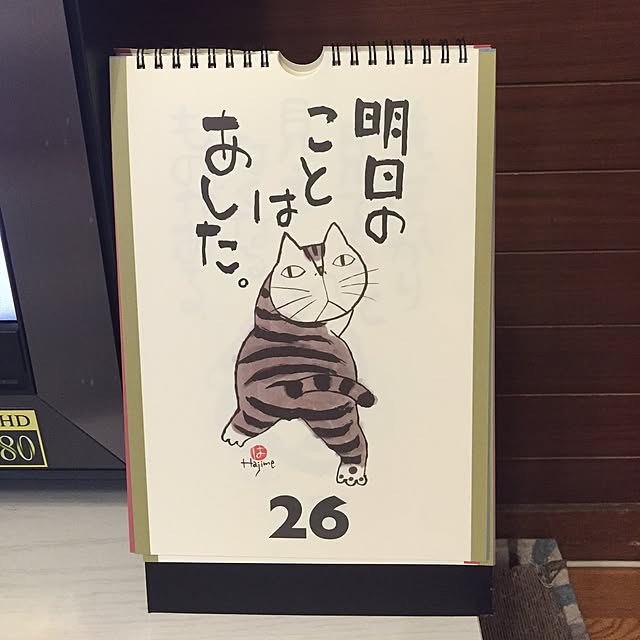 明日の
こと
は
あした。
は
Hajime
26
HD
80